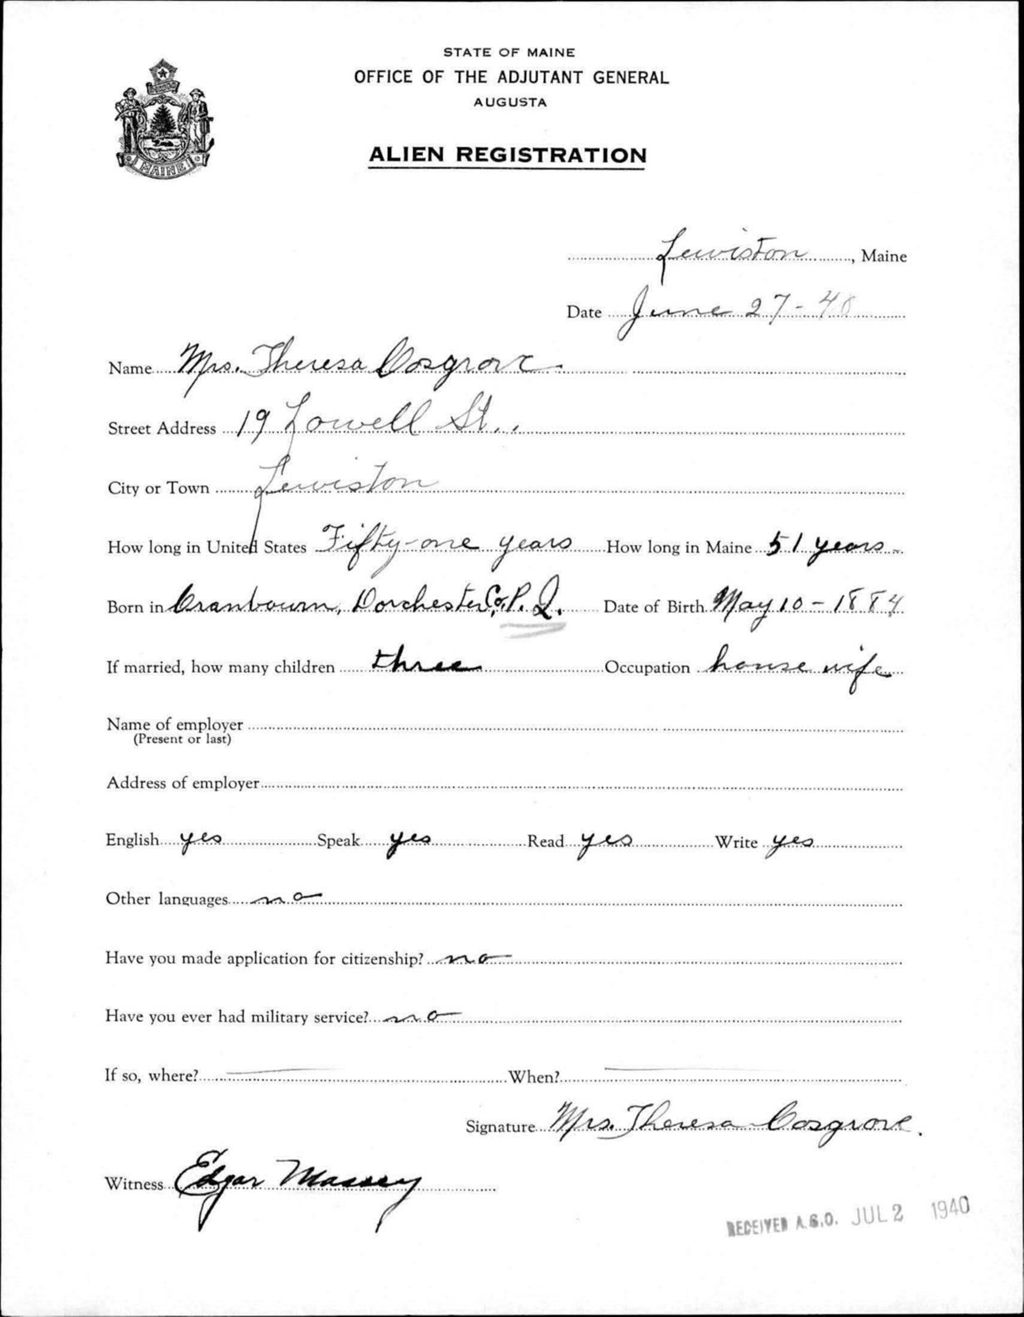 STATE OF MAINE
OFFICE OF THE ADJUTANT GENERAL
AUGUSTA
ALIEN REGISTRATION
MAINE
Lewiston, Maine
Date June 27-40
Name Mrs. Theresa Cosgrove
Street Address 19 Lowell St.
City or Town Lewiston
How long in United States Fifty-one years How long in Maine 51 years
Born in Cranbourn, Dorchester Co, P.Q. Date of Birth May 10-1884
If married, how many children three Occupation house wife
Name of employer
(Present or last)
Address of employer
English yes Speak yes Read yes Write yes
Other languages no
Have you made application for citizenship? no
Have you ever had military service? no
If so, where? When?
Signature Mrs. Theresa Cosgrove.
Witness Edgar Massey
RECEIVED A.G.O. JUL 2 1940